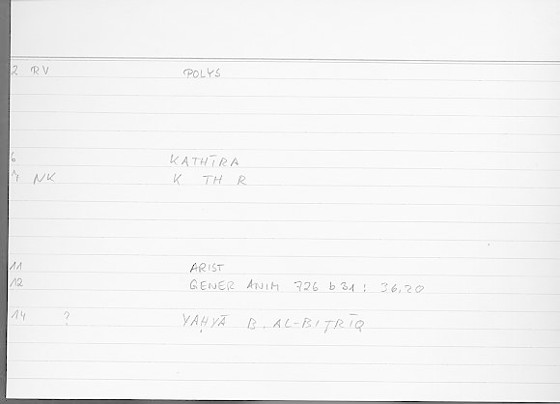 2 RV POLYS
6 KATHĪRA
7 NK K TH R
11 ARIST
12 GENER ANIM 726 b 31 : 36,20
14 ? YAḤYĀ B. AL-BIṬRĪQ